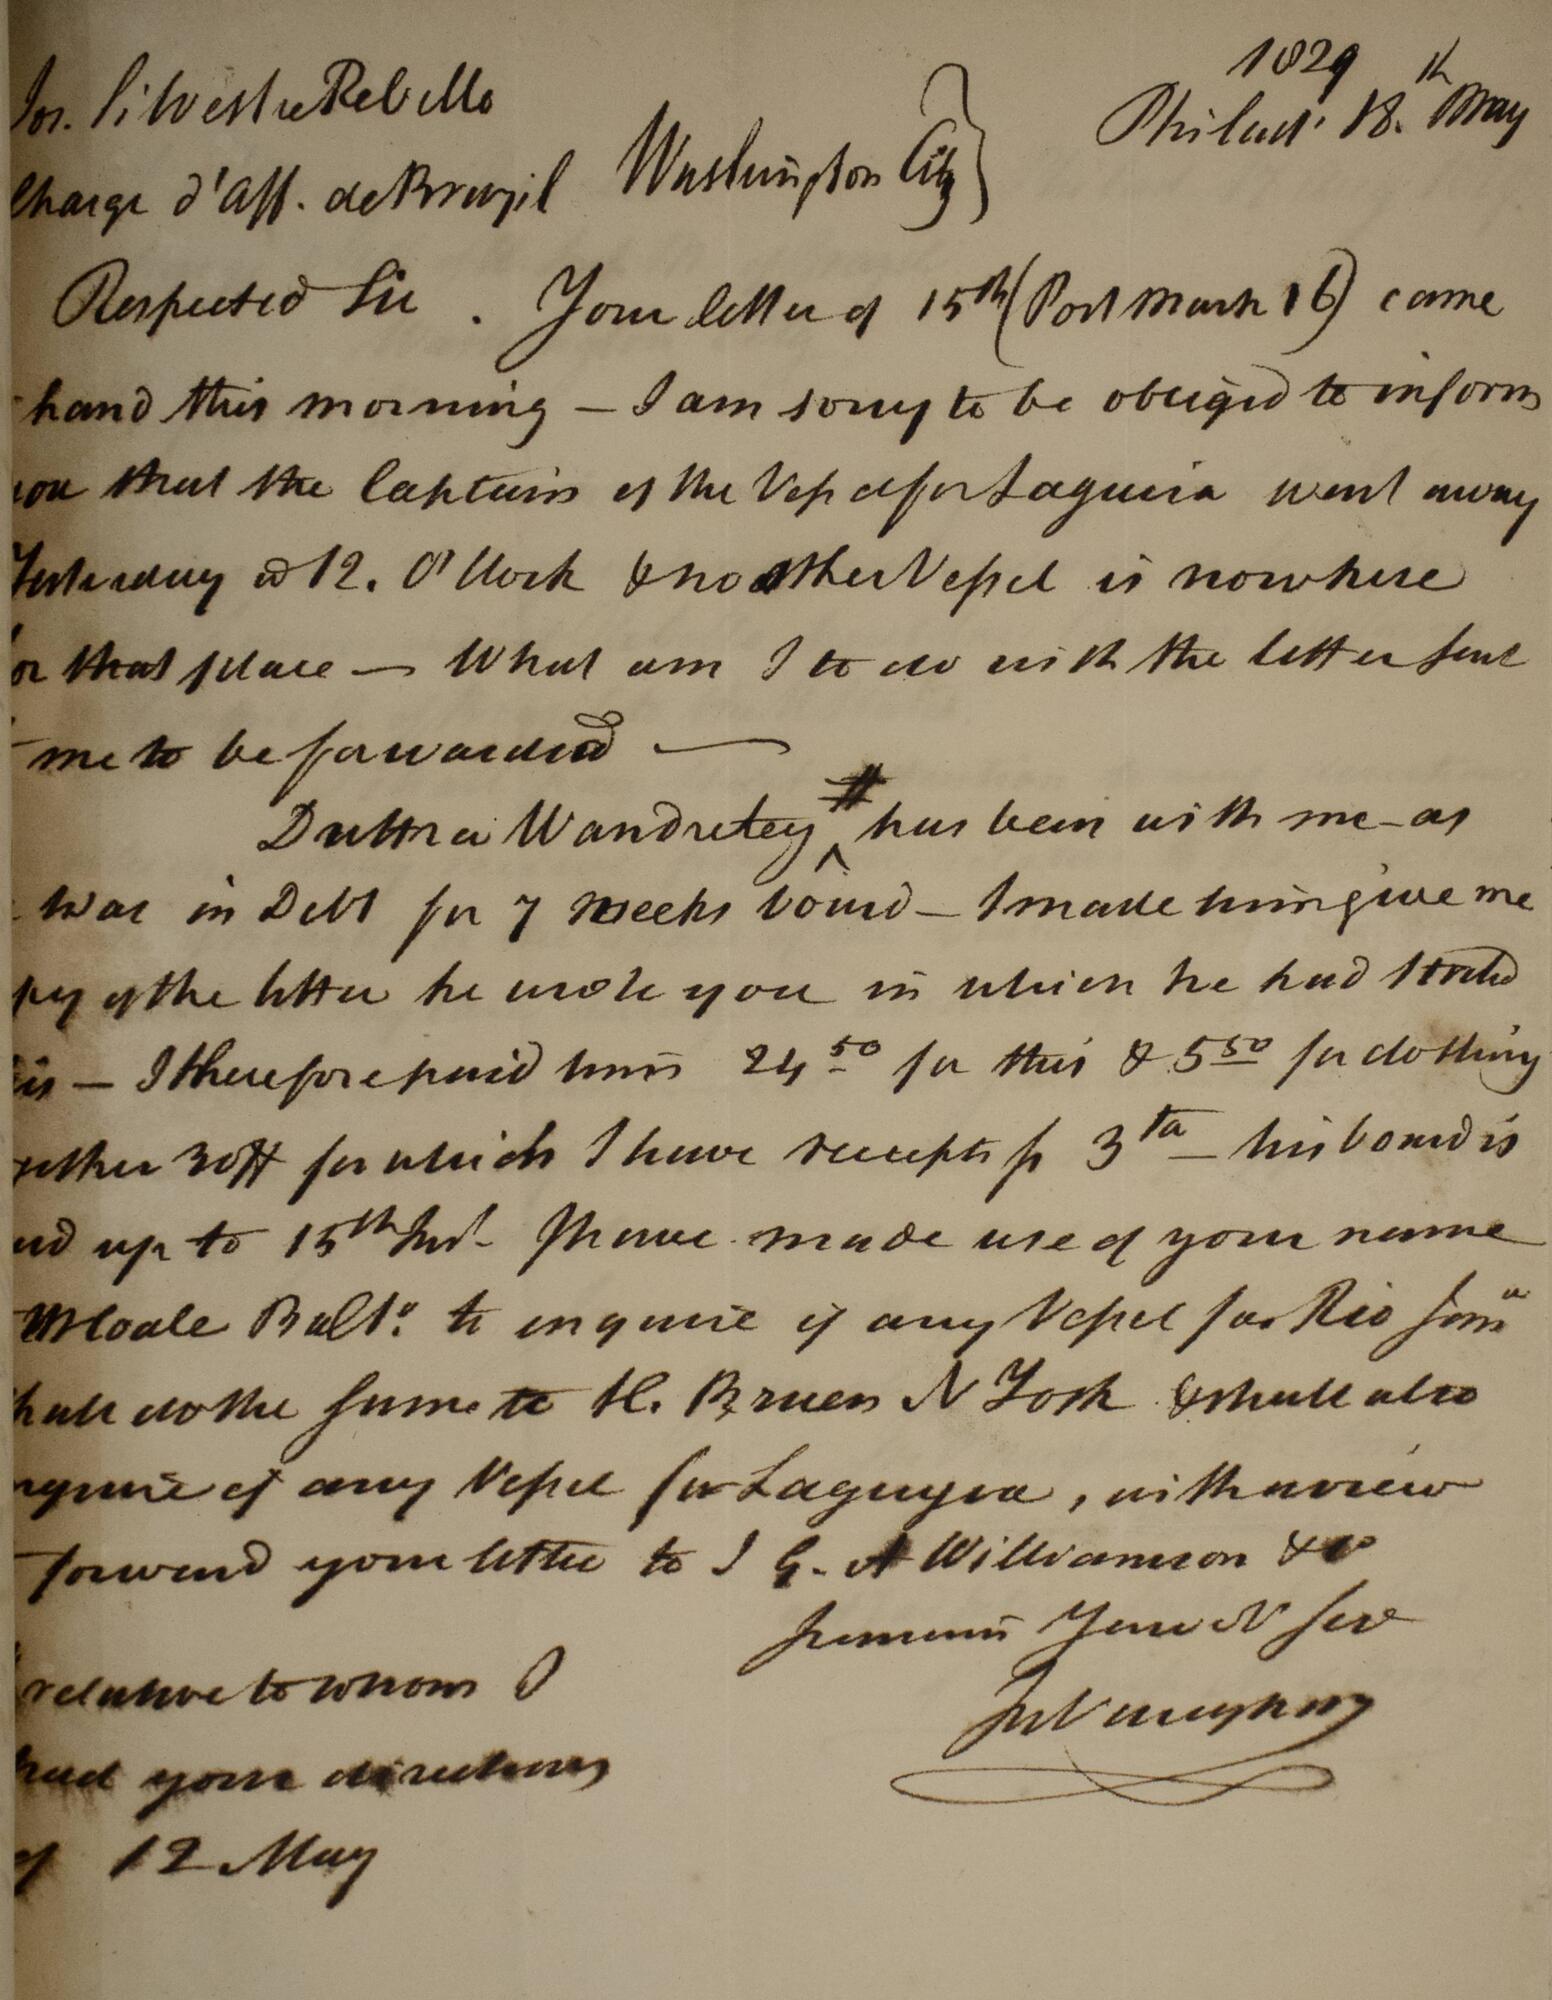 1829
Jos. Silvestre Rebello Philadᵃ 18.th May
Charge d'Aff. de Brezil Washington City
Respected Sir . Your letter of 15th (Post Mark 16) came
hand this morning — I am sorry to be obliged to inform
you that the Captain of the Vessel for Laguira went away
Yesterday @ 12. O'Clock & no other Vessel is now here
for that place — What am I to do with the letter sent
me to be forwarded —
Duttra Wandreley # has been with me — as
was in Debt for 7 Weeks board — I made him give me
py of the letter he wrote you in which he had stated
is — I therefore paid him 24 50 for this & 5 50 for clothing
gether 30$ for which I have receipts p 3ta — his board is
id up to 15th Inst. I have made use of your name
Moale Balto. to enquire if any Vessel for Rio Jano
hall do the same to H. Bruen N York & shall also
nquire of any Vessel for Laguyra, with a view
forward your letter to J G. A Williamson &c
remain Your Ob Serv
Jn Vaughan
relative to whom I
had your directions
of 12 May